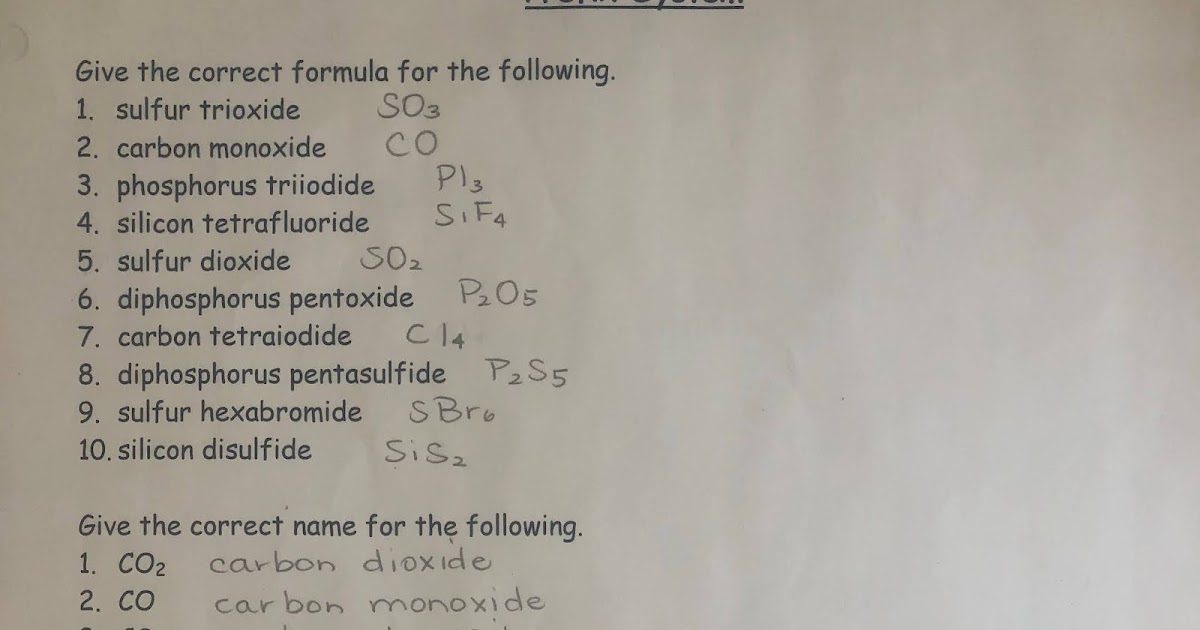 Give the correct formula for the following.
1. sulfur trioxide SO3
2. carbon monoxide CO
3. phosphorus triiodide PI3
4. silicon tetrafluoride SiF4
5. sulfur dioxide SO2
6. diphosphorus pentoxide P2O5
7. carbon tetraiodide CI4
8. diphosphorus pentasulfide P2S5
9. sulfur hexabromide SBr6
10. silicon disulfide SiS2
Give the correct name for the following.
1. CO2 carbon dioxide
2. CO carbon monoxide